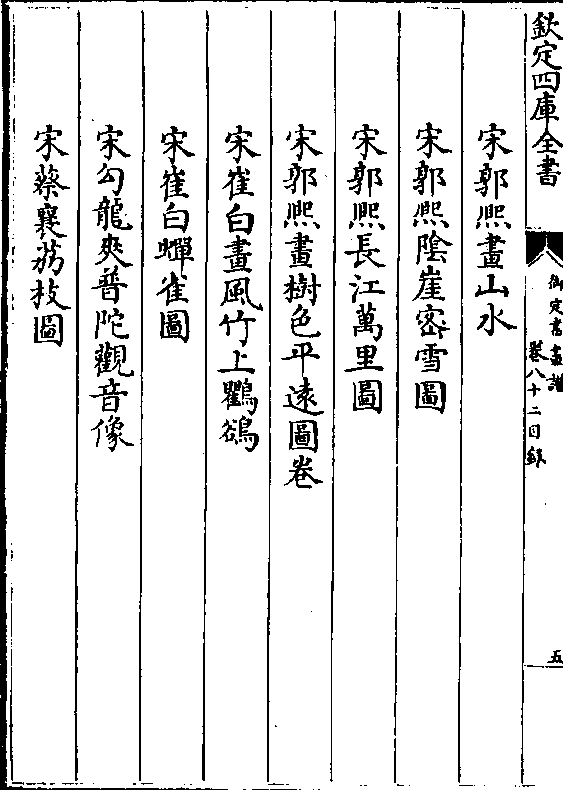 欽定四庫全書
御定書畫譜
卷八十二目錄
五
宋郭熙畫山水
宋郭熙陰崖密雪圖
宋郭熙長江萬里圖
宋郭熙畫樹色平遠圖卷
宋崔白畫風竹上鸜鵒
宋崔白蟬雀圖
宋勾龍爽普陀觀音像
宋蔡襄荔枝圖